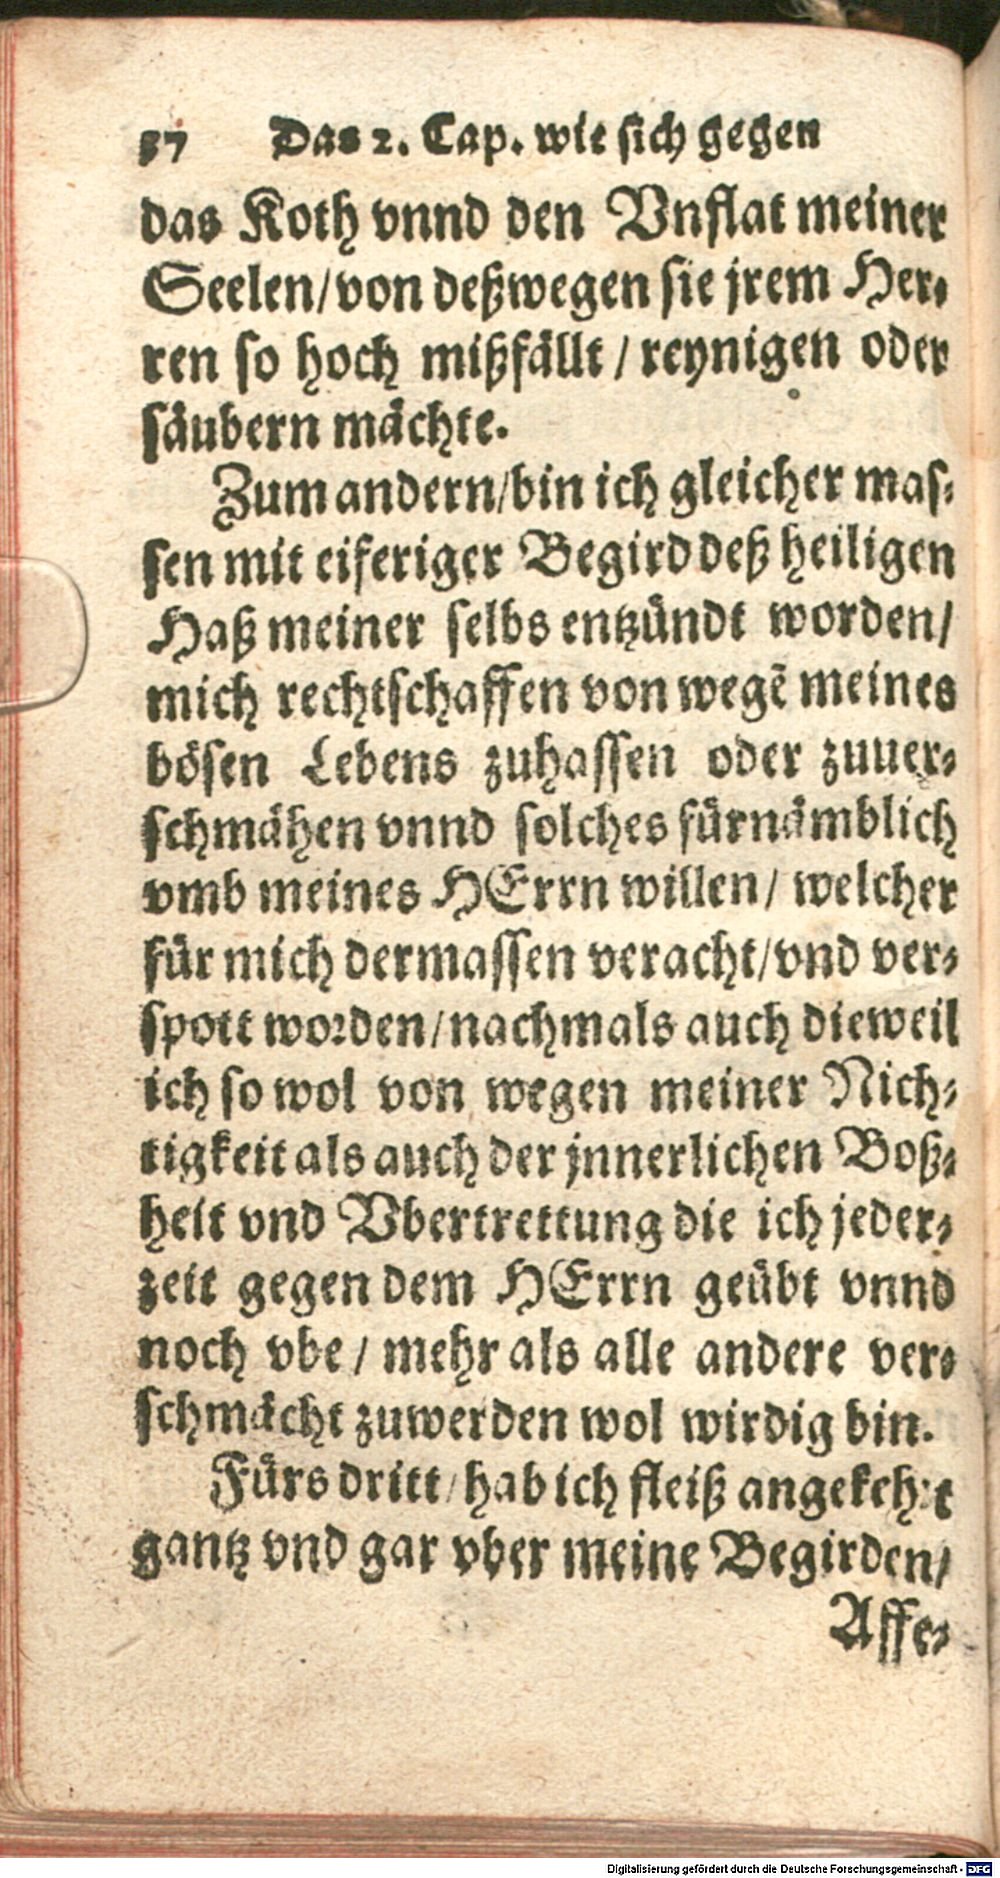 57 Das 2. Cap. wie sich gegen
das Koth vnnd den Vnflat meiner
Seelen/von deßwegen sie jrem Her-
ren so hoch mißfällt / reynigen oder
säubern mächte.
Zum andern/bin ich gleicher mas-
sen mit eiferiger Begird deß heiligen
Haß meiner selbs entzündt worden/
mich rechtschaffen von wegẽ meines
bösen Lebens zuhassen oder zuuer-
schmähen vnnd solches fürnämblich
vmb meines HErrn willen/ welcher
für mich dermassen veracht/vnd ver-
spott worden/nachmals auch dieweil
ich so wol von wegen meiner Nich-
tigkeit als auch der jnnerlichen Boß-
heit vnd Vbertrettung die ich jeder-
zeit gegen dem HErrn geübt vnnd
noch vbe / mehr als alle andere ver-
schmächt zuwerden wol wirdig bin.
Fürs dritt/hab ich fleiß angekehrt
gantz vnd gar vber meine Begirden/
Affe-
Digitalisierung gefördert durch die Deutsche Forschungsgemeinschaft - DFG